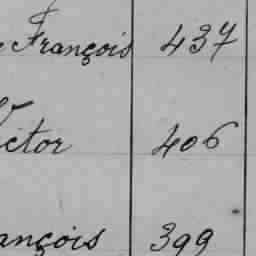 François 437
ictor 406
ançois 399